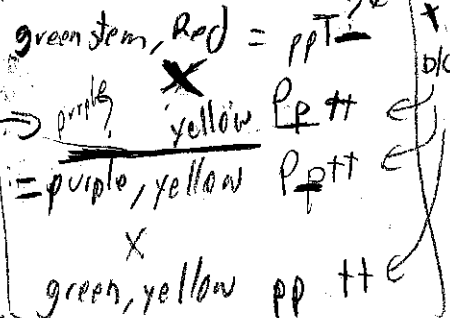 green stem, Red = ppT_
X
⇒ purple, yellow Pp tt
= purple, yellow Pp tt
X
green, yellow pp tt